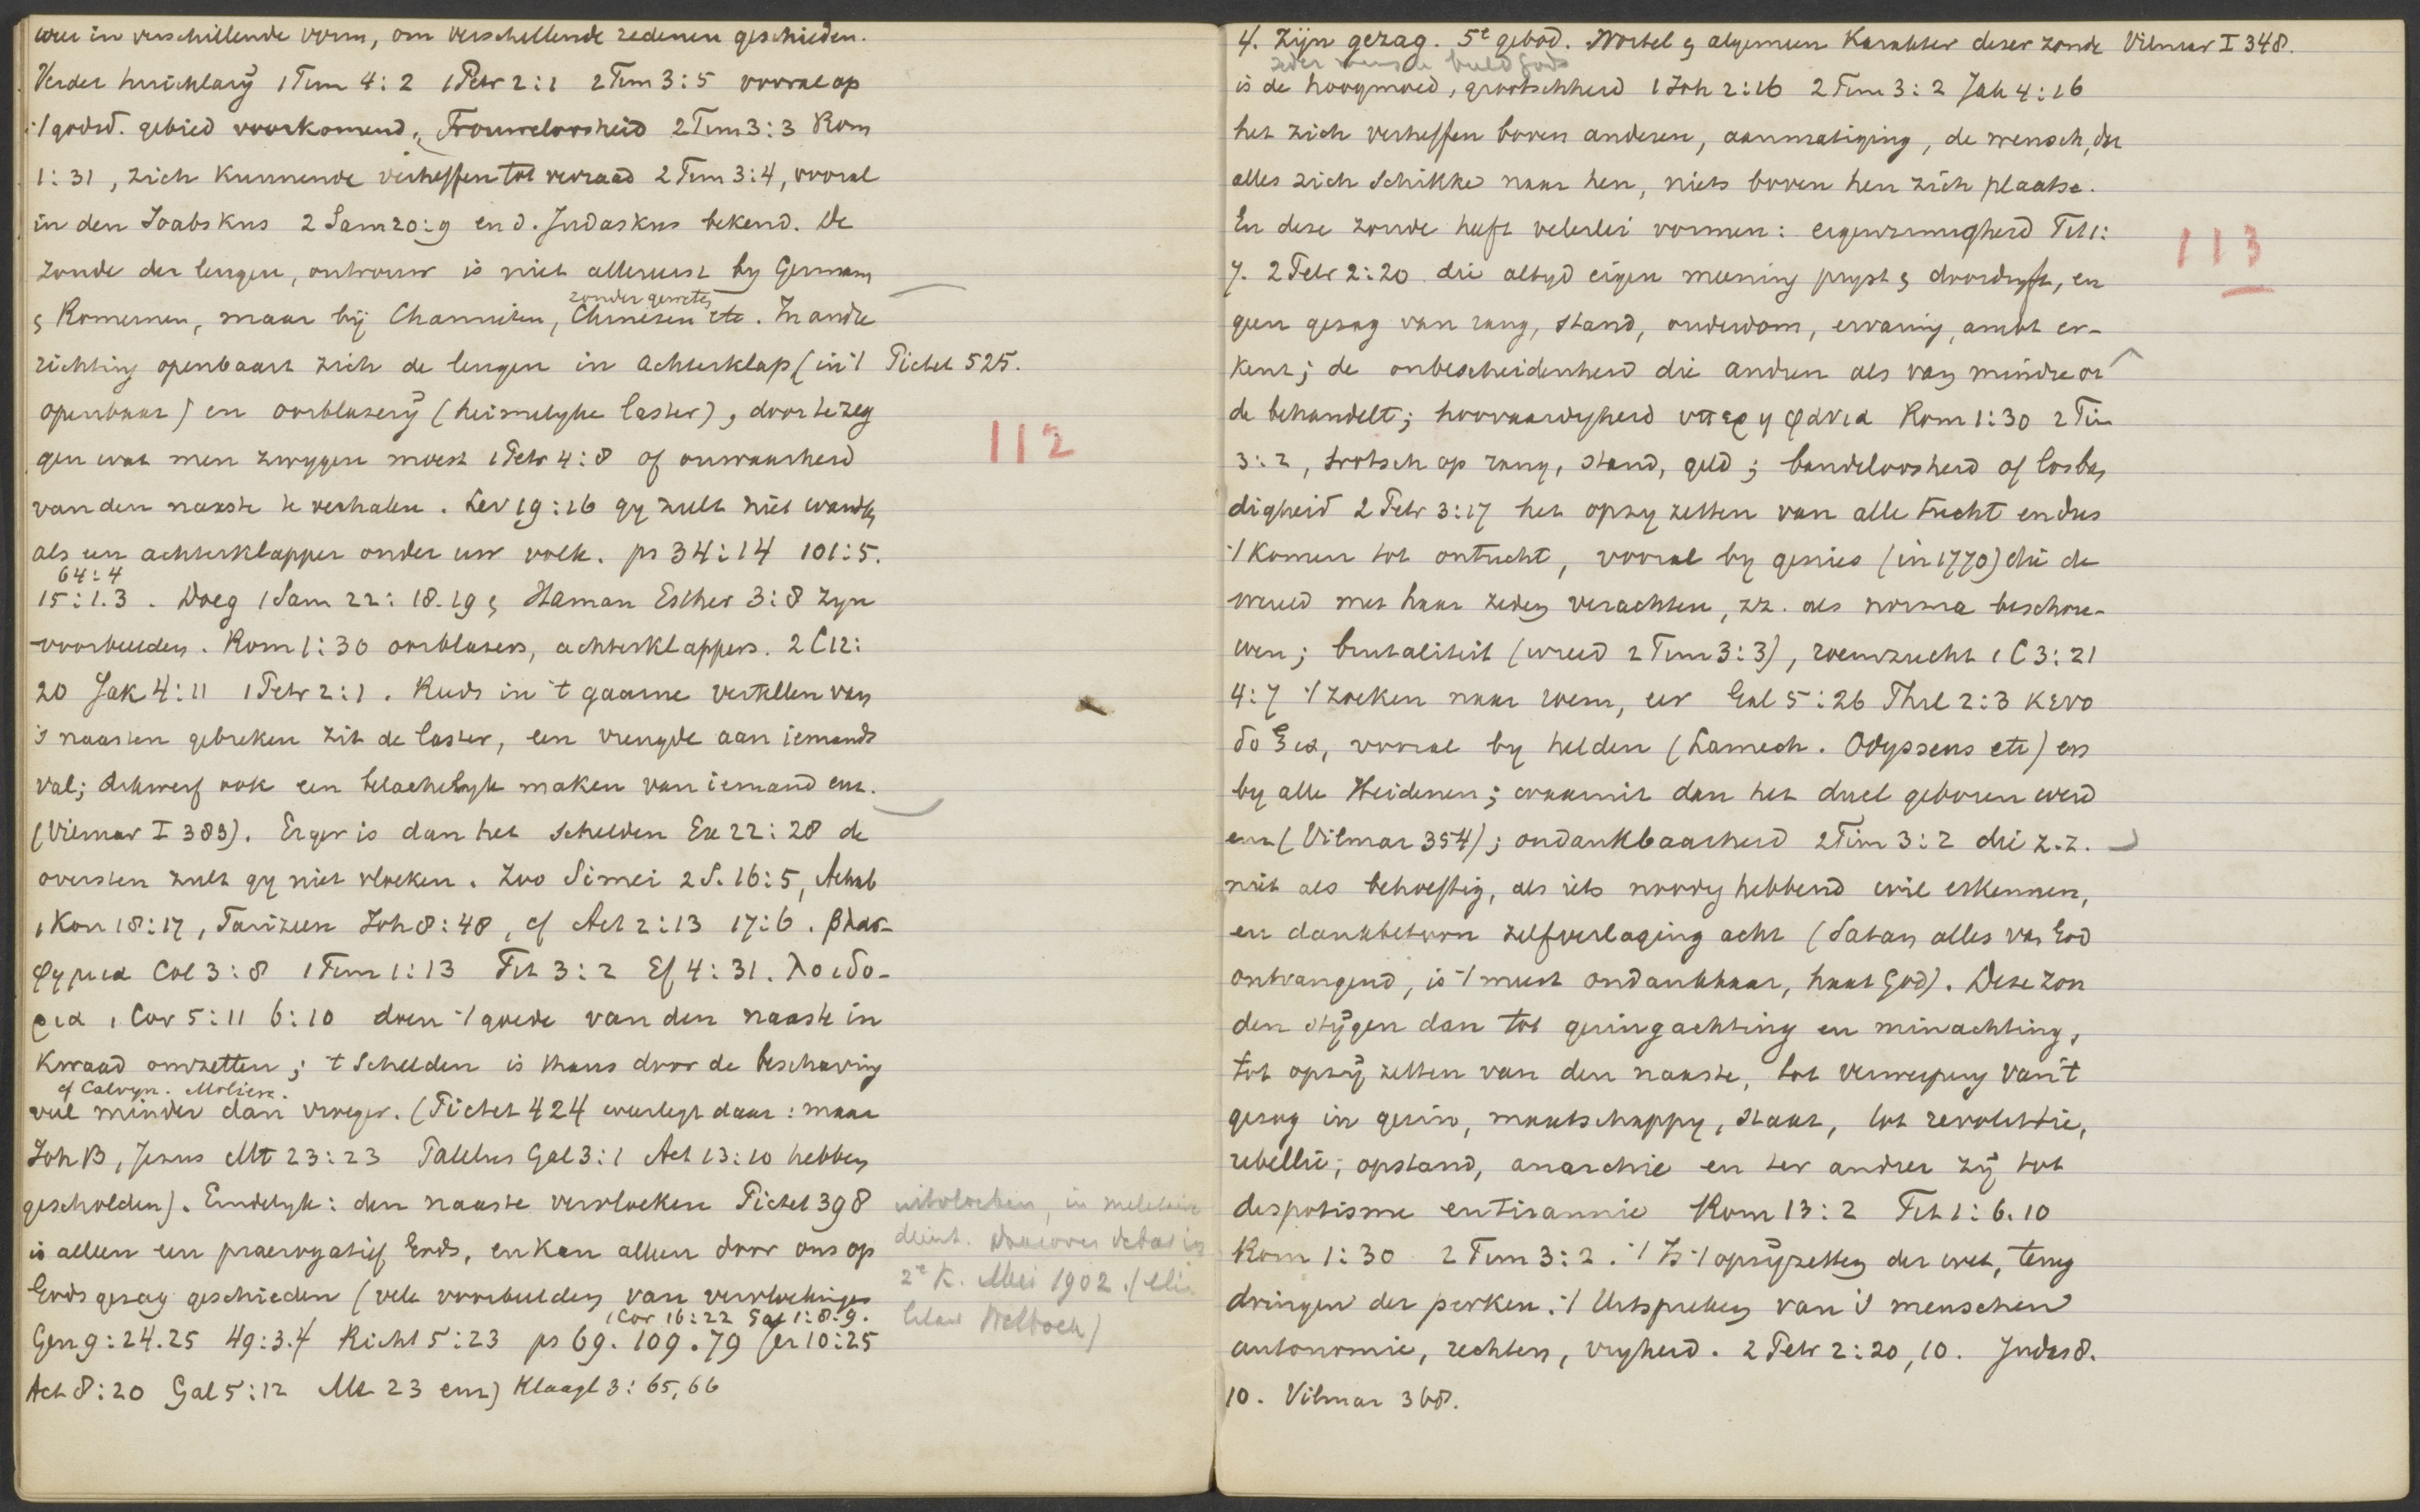 weer in verschillende vorm, om verschillende redenen geschieden.
Verder huichlarij 1 Tim 4:2 1 Petr 2:1 2 Tim 3:5 vooral op
't godsd. gebied voorkomend, Trouweloosheid 2 Tim 3:3 Rom
1:31, zich kunnende verheffen tot verraad 2 Tim 3:4, vooral
in den Joabskus 2 Sam 20:9 en d. Judaskus bekend. De
zonde der leugen, ontrouw is niet allereerst by Germanen
zonder geweten
& Romeinen, maar bij Chamieten, Chinezen etc. In andre
richting openbaart zich de leugen in achterklap (in 't
Pictet 525.
openbaar) en oorblazerij (heimelyke laster), door te zeg
112
gen wat men zwygen moest 1 Petr 4:8 of onwaarheid
van den naaste te verhalen. Lev 19:16 gy zult niet wandlen
als een achterklapper onder uw volk. ps 34:14 101:5.
64:4
15:1.3. Doeg 1 Sam 22:18.19 & Haman Esther 3:8 zyn
voorbeelden. Rom 1:30 oorblazers, achterklappers. 2 C 12:
20 Jak 4:11 1 Petr 2:1. Reeds in 't gaarne vertellen van
's naasten gebreken zit de laster, een vreugde aan iemands
val; dikwerf ook een belachelyk maken van iemand enz.
(Vilmar I 383). Erger is dan het schelden Ex 22:28 de
oversten zult gy niet vloeken. Zoo Simei 2 S. 16:5, Achab
1 Kon 18:17, Farizeen Joh 8:48, cf Act 2:13 17:6. βλασ-
φημια Col 3:8 1 Tim 1:13 Tit 3:2 Ef 4:31. λοιδο-
ρια 1 Cor 5:11 6:10 doen 't goede van den naaste in
kwaad omzetten; 't schelden is thans door de beschaving
cf Calvyn. Molière.
veel minder dan vroeger. (Pictet 424 weerlegt daar: maar
Joh B, Jezus Mt 23:23 Paulus Gal 3:1 Act 13:10 hebben
gescholden). Eindelyk: den naaste vervloeken Pictet 398
is alleen een praerogatief Gods, en kan alleen door ons op
Gods gezag geschieden (vele voorbeelden van vervloekingen
1 Cor 16:22 Gal 1:8.9.
Gen 9:24.25 49:3.4 Richt 5:23 ps 69. 109. 79 Jer 10:25
Act 8:20 Gal 5:12 Mt 23 enz) Klaagl 3:65,66
uitvloeken, in militaire
dienst. Daarover debat in
2e K. Mei 1902.
4. Zijn gezag. 5e gebod. Wortel & algemeen karakter dezer zonde
Vilmar I 348.
ieder mensch beeld Gods
is de hoogmoed, grootschheid 1 Joh 2:16 2 Tim 3:2 Jak 4:16
het zich verheffen boven anderen, aanmatiging, de wensch, dat
alles zich schikke naar hen, niets boven hen zich plaatse.
En deze zonde heeft velerlei vormen: eigenzinnigheid Tit 1:
113
7. 2 Petr 2:20 die altyd eigen meening pryst & doordryft, en
geen gezag van rang, stand, ouderdom, ervaring, ambt er-
kent; de onbescheidenheid die andren als van mindre or
de behandelt; hoovaardyheid υπερηφανια Rom 1:30 2 Tim
3:2, trotsch op rang, stand, geld; bandeloosheid of losban
digheid 2 Petr 3:17 het opzy zetten van alle tucht en dus
't komen tot ontucht, vooral by genies (in 1770) die de
wereld met haar zeden verachten, zz. als norma beschou-
wen; brutaliteit (wreed 2 Tim 3:3), roemzucht 1 C 3:21
4:7 't zoeken naar roem, eer Gal 5:26 Phil 2:3 κενο
δοξια, vooral by helden (Lamech. Odysseus etc) en
by alle Heidenen; waaruit dan het duel geboren werd
enz (Vilmar 354); ondankbaarheid 2 Tim 3:2 die z.z.
niet als behoeftig, als iets noodig hebbend wil erkennen,
en dankbetoon zelfverlaging acht (Satan alles van God
ontvangend, is 't meest ondankbaar, haat God). Deze zon
den stijgen dan tot geringachting en minachting,
tot opzij zetten van den naaste, tot verwerping van 't
gezag in gezin, maatschappy, staat, tot revolutie,
rebellie, opstand, anarchie en ter andrer zij tot
despotisme en tirannie Rom 13:2 Tit 1:6.10
Rom 1:30 2 Tim 3:2. 't Is 't opzijzetten der wet, terug
dringen der perken. 't Uitspreken van 's menschen
autonomie, rechten, vryheid. 2 Petr 2:20,10. Judas 8.
10. Vilmar 368.